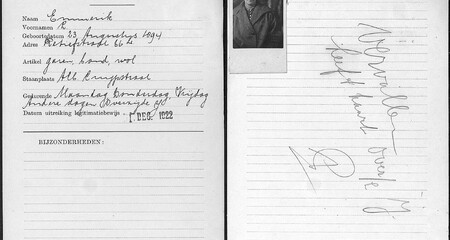 Naam Emmerik
Voornamen E.
Geboortedatum 23 Augustus 1894
Adres Retiefstraat 66 A
Artikel garen, band, wol
Staanplaats Alb. Cuypstraat
Gedurende Maandag Donderdag, Vrijdag
Andere dagen
Datum uitreiking legitimatiebewijs 1 DEC. 1922
BIJZONDERHEDEN:
Vervallen
heeft kaart over